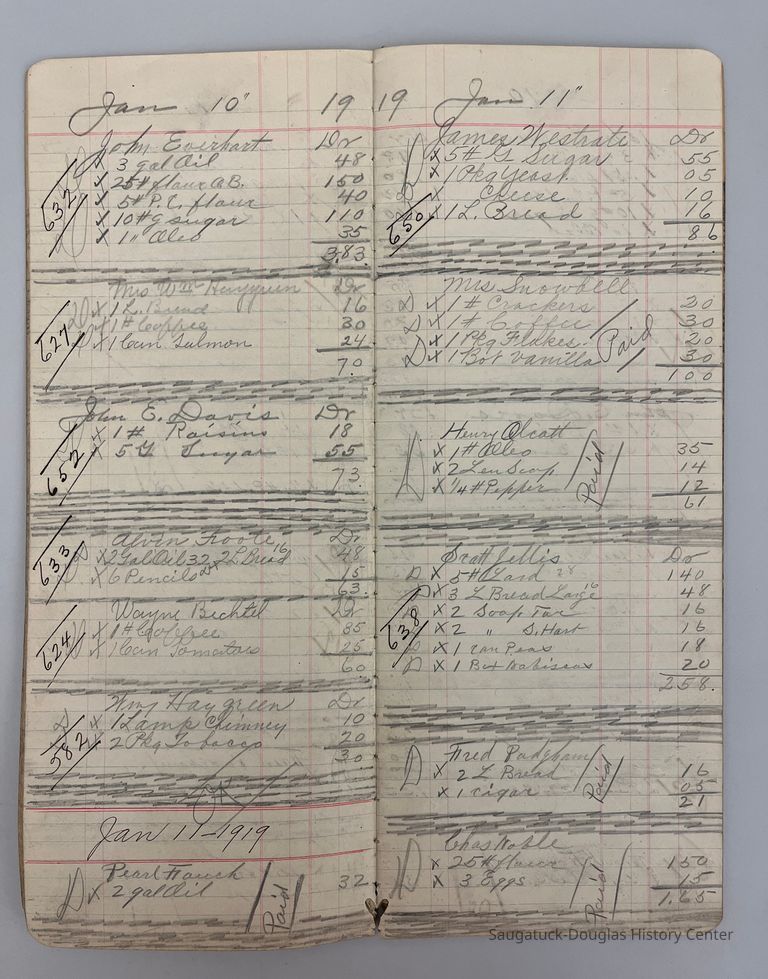 Jan 10" 19
John Everhart Dr
632
x 3 gal Oil 48
x 25# flour A.B. 150
x 5# P.C. flour 40
x 10# G sugar 110
x 1" Oleo 35
3.83
Mrs Wm Haygreen Dr
627
x 1 L. Bread 16
x 1# Coffee 30
x 1 Can Salmon 24
70
John E. Davis Dr
652
x 1# Raisins 18
x 5 G Sugar 55
73
Alvin Foote Dr
633
x 2 Gal Oil 32, 2 L Bread 16 48
x 6 Pencils 15
63
Wayne Bechtel Dr
624
x 1# Coffee 35
x 1 Can Tomatoes 25
60
Wm Haygreen Dr
582
x 1 Lamp Chimney 10
x 2 Pkg Tobacco 20
30
Jan 11-1919
Pearl
D x 2 gal Oil 32
Paid
19 Jan 11"
James Westrate Dr
650
x 5# G Sugar 55
x 1 Pkg Yeast 05
x Cheese 10
x 1 L. Bread 16
86
Mrs Snowbell
D x 1# Crackers 20
D x 1# Coffee 30
x 1 Pkg Flakes 20
D x 1 Bot Vanilla 30
Paid
100
Henry Olcott
D x 1# Oleo 35
x 2 Len Soap 14
x 1/4# Pepper 12
Paid
61
Dr
638
D x 5# Lard 28 140
D x 3 L Bread Large 16 48
x 2 Soap Tar 16
x 2 " S. Hart 16
D x 1 can Peas 18
D x 1 Bx Nabiscos 20
258.
Fred Padgham
D x 2 L Bread 16
x 1 cigar 05
Paid
21
Chas Noble
D x 25# flour 150
x 3 Eggs 15
Paid
1.65
Saugatuck-Douglas History Center